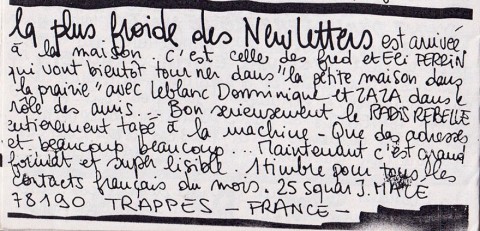 la plus froide des Newletters est arrivée
à la maison c'est celle des fred et Eli PERRIN
qui vont bientôt tourner dans "la petite maison dans
la prairie" avec Leblanc Dominique et ZAZA dans le
rôle des amis... Bon serieusement le RADIS REBELLE
entierement tapé à la machine - Que des adresses
et beaucoup beaucoup... Maintenant c'est grand
format et super lisible. 1 timbre pour tous les
contacts français du mois. 25 squar J. MACE
78190 TRAPPES - FRANCE -